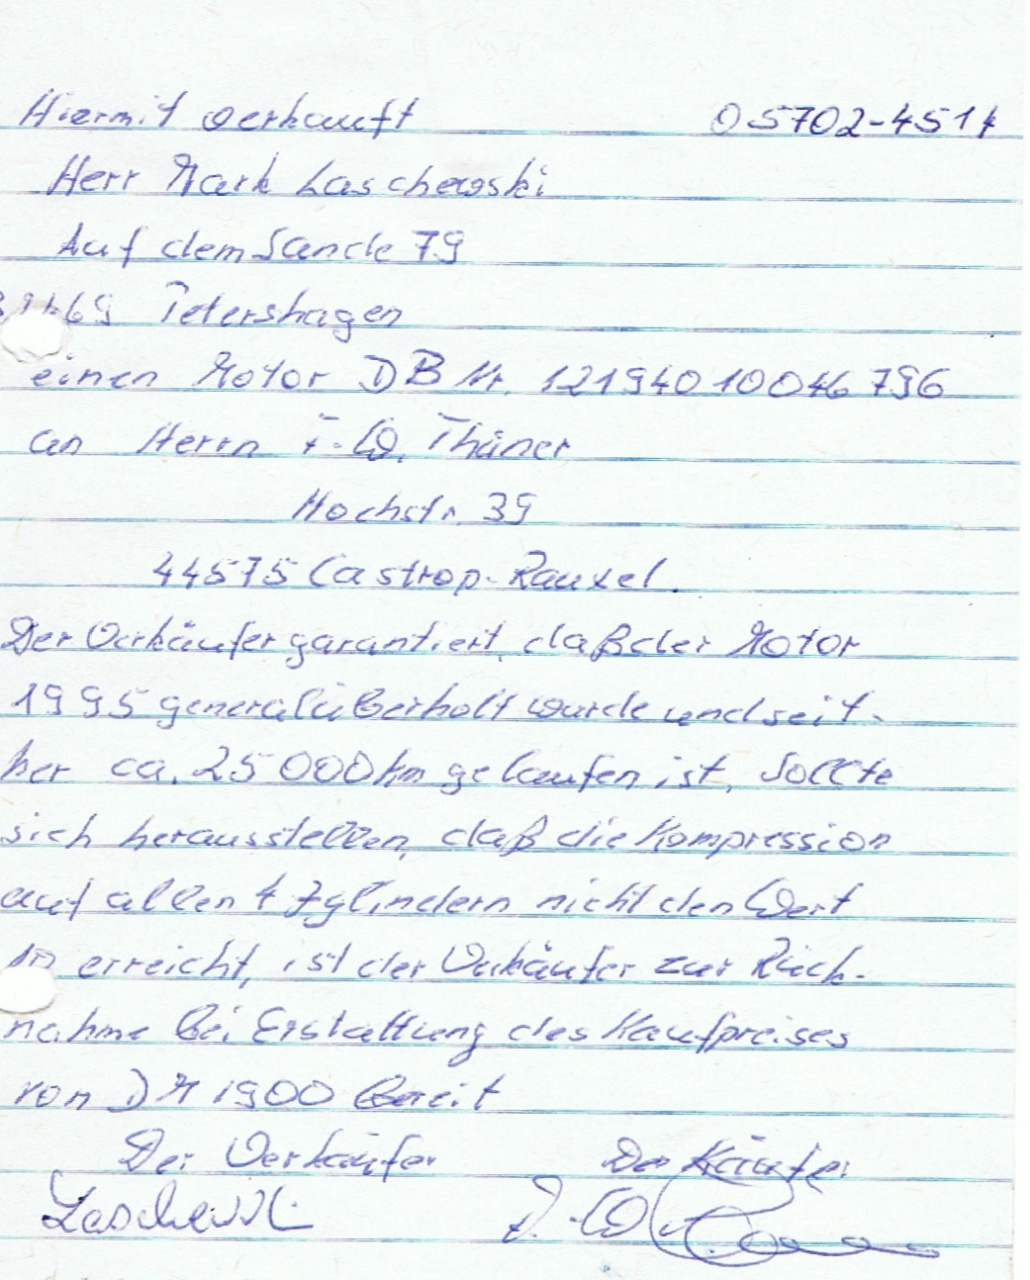 Hiermit verkauft 05702-4514
Herr Mark Laschewski
Auf dem Sande 79
Petershagen
einen Motor DB Nr. 12194010046796
an Herrn F.-W. Thüner
Hochstr. 39
44575 Castrop-Rauxel.
Der Verkäufer garantiert, daß der Motor
1995 generalüberholt wurde und seit-
her ca. 25000 km gelaufen ist, Sollte
sich herausstellen, daß die Kompression
auf allen 4 Zylindern nicht den Wert
10 erreicht, ist der Verkäufer zur Rück-
nahme bei Erstattung des Kaufpreises
von DM 1900 bereit
Der Verkäufer Der Käufer
Laschewski F.-W.